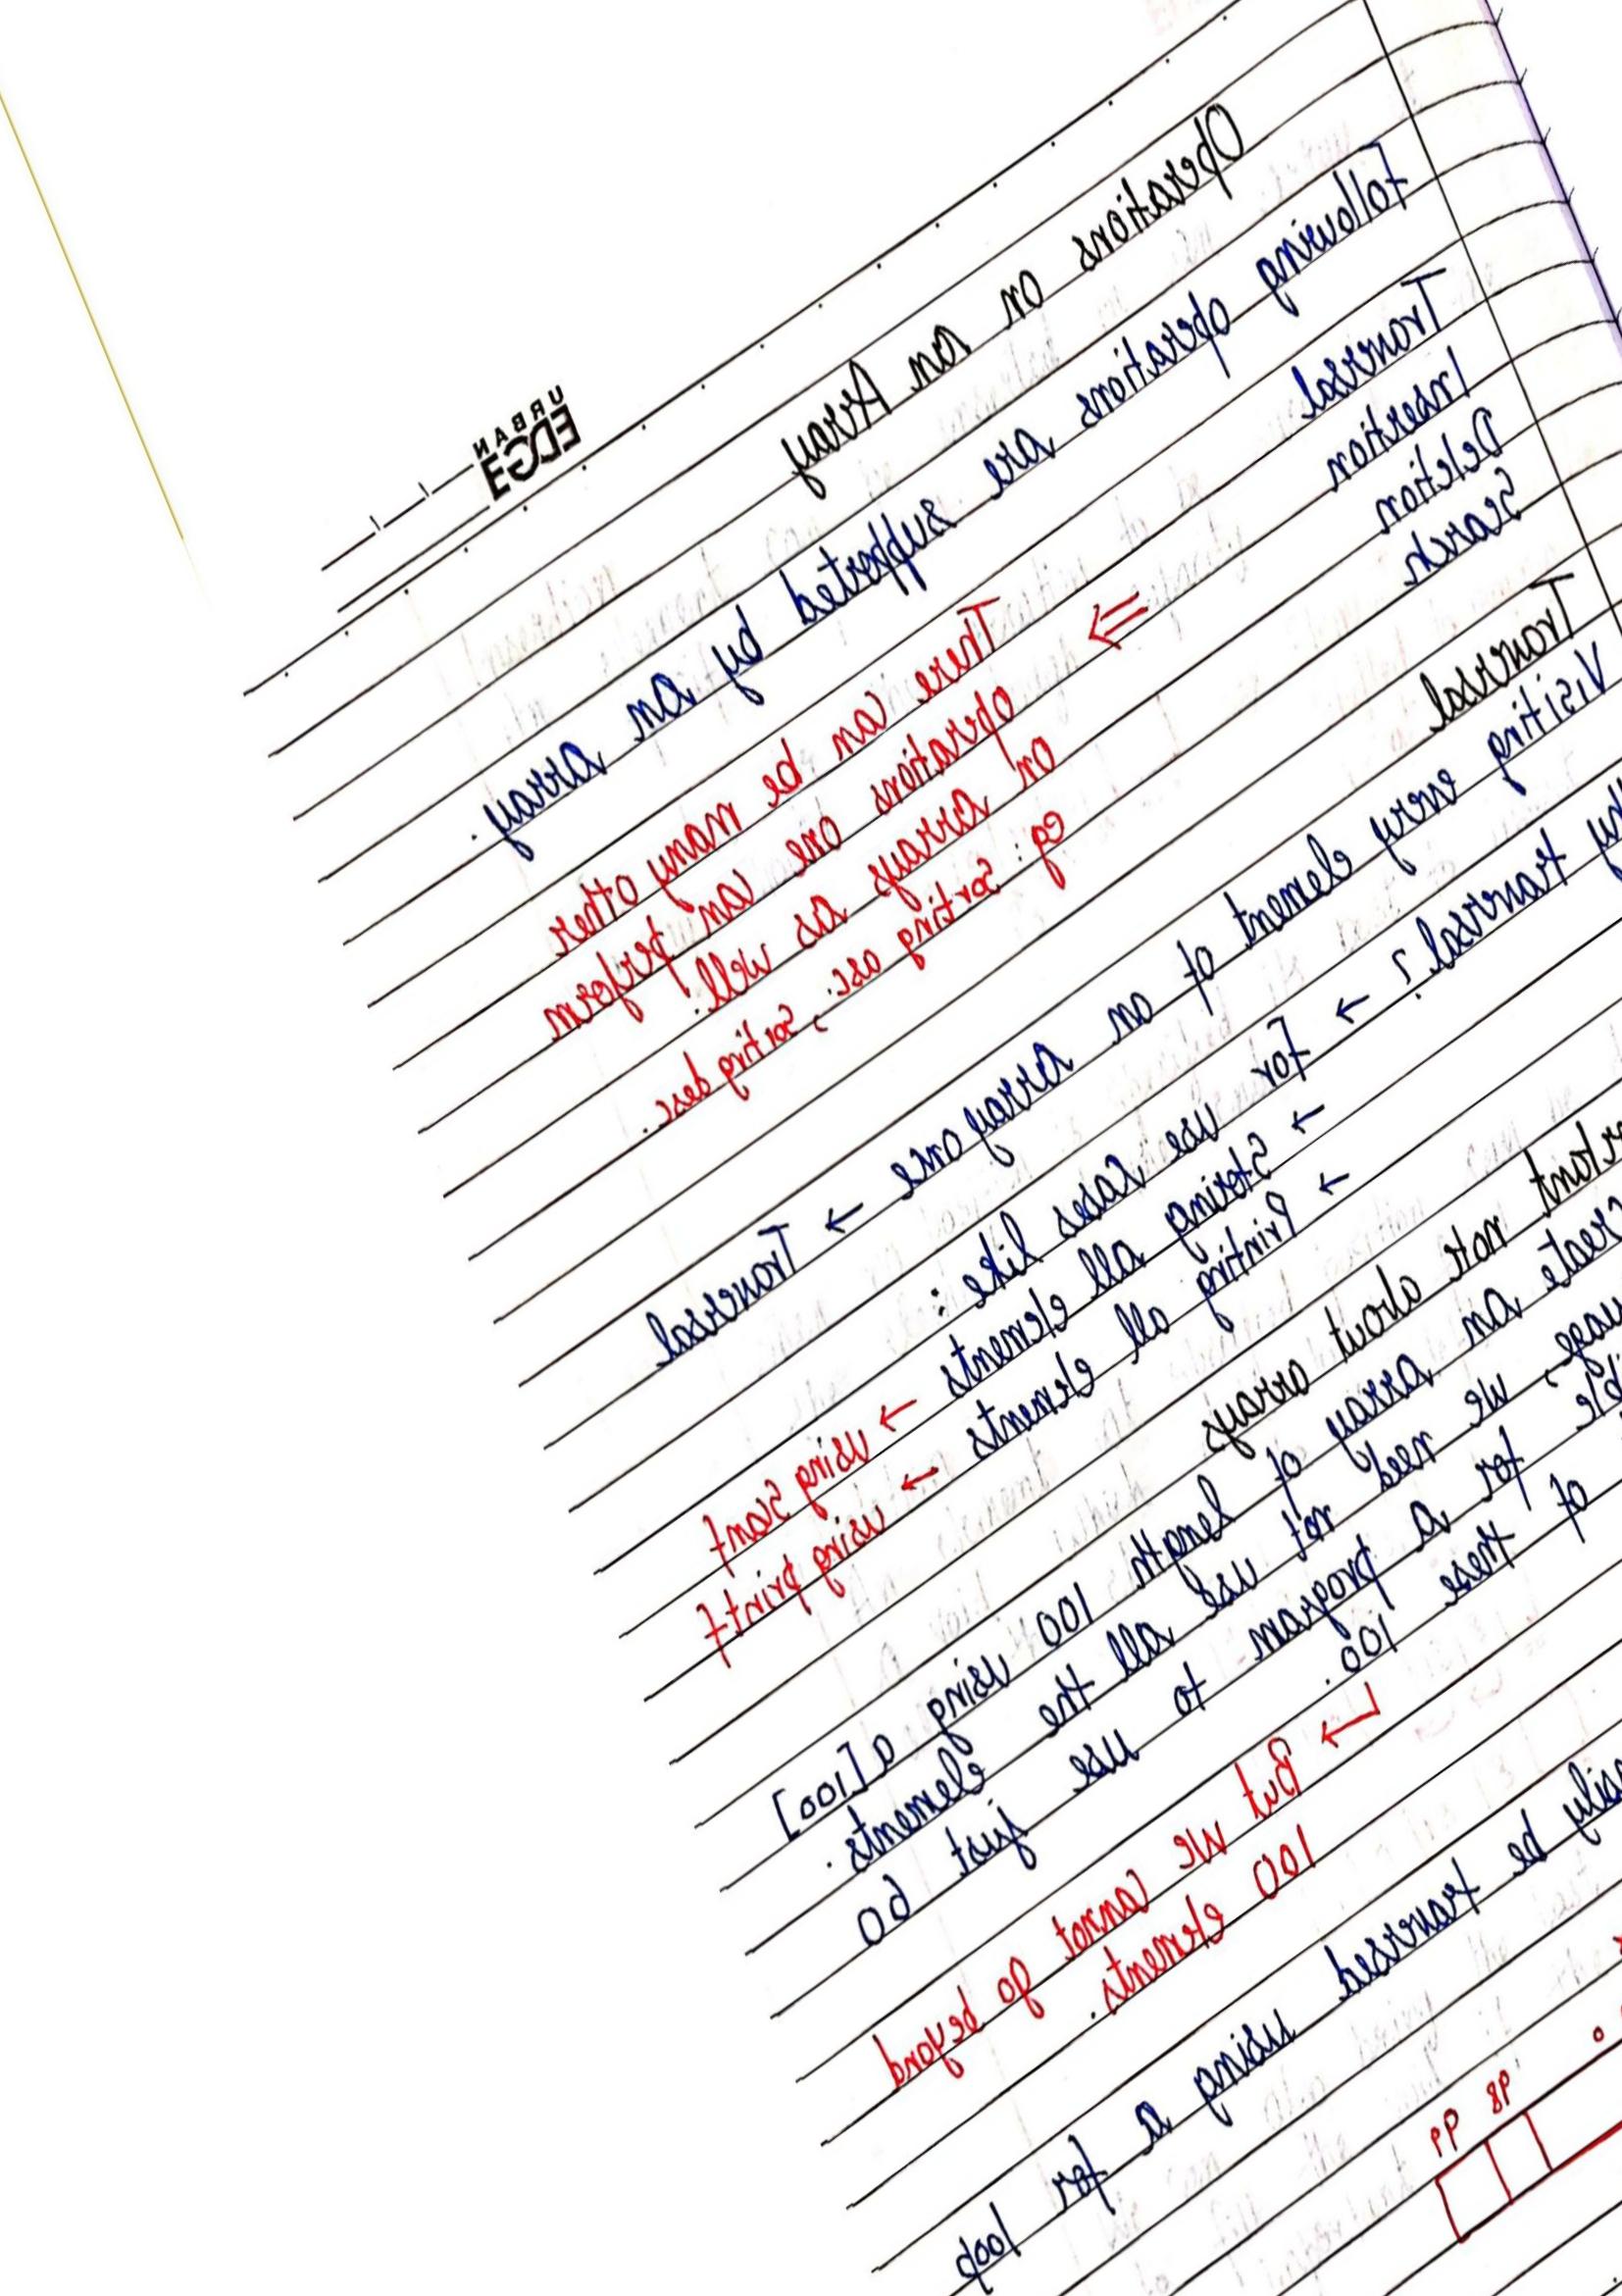 URBAN
EDGE
Operations on an Array
Following operations are supported by an array.
Traversal
Insertion
Deletion
Search
⇒ There can be many other
operations one can perform
on arrays as well.
eg: Sorting asc., Sorting desc.
Traversal
Visiting every element of an array once → Traversal
traversal? → For use cases like :
→ Storing all elements → using Scanf
→ Printing all elements → using printf
note about arrays
an array of length 100 using a[100]
we need not use all the elements.
for a program to use just 60
of these 100.
↳ But we cannot go beyond
100 elements.
be traversed using a for loop
98 99